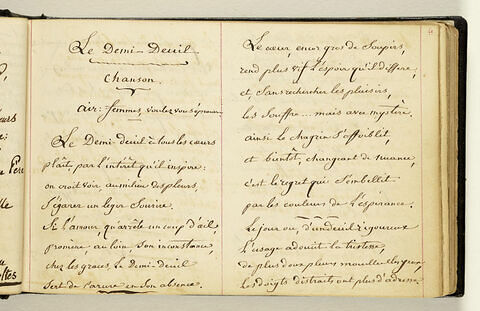 Le Demi-Deuil
Chanson.
air: femmes, voulez vous éprouver
Le Demi-deuil à tous les cœurs
plaît, par l'intérêt qu'il inspire:
on croit voir au milieu des pleurs,
S'égarer un leger Sourire.
Si l'amour, qu'arrête un coup d'œil,
promène, au loin, Son inconstance,
chez les graces, Le Demi-Deuil
Sert de parure en Son absence.
Le cœur, encor gros de Soupirs,
rend plus vif L'espoir qu'il differe,
et, Sans rechercher les plaisirs,
les Souffre... mais avec mystère.
ainsi le chagrin S'affoiblit,
et bientôt, changeant de nuance,
c'est le regret qui S'embellit
par les couleurs de L'espérance.
Le jour où, d'un deuil rigoureux
L'usage adoucit la tristesse,
de plus doux pleurs mouillent les yeux,
Les doigts distraits ont plus d'adresse